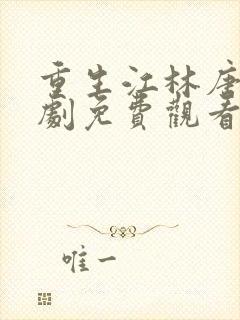 重生江林唐
劇免費觀看
唯一